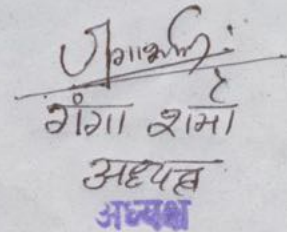 गंगा शर्मा
अध्यक्ष
अध्यक्ष